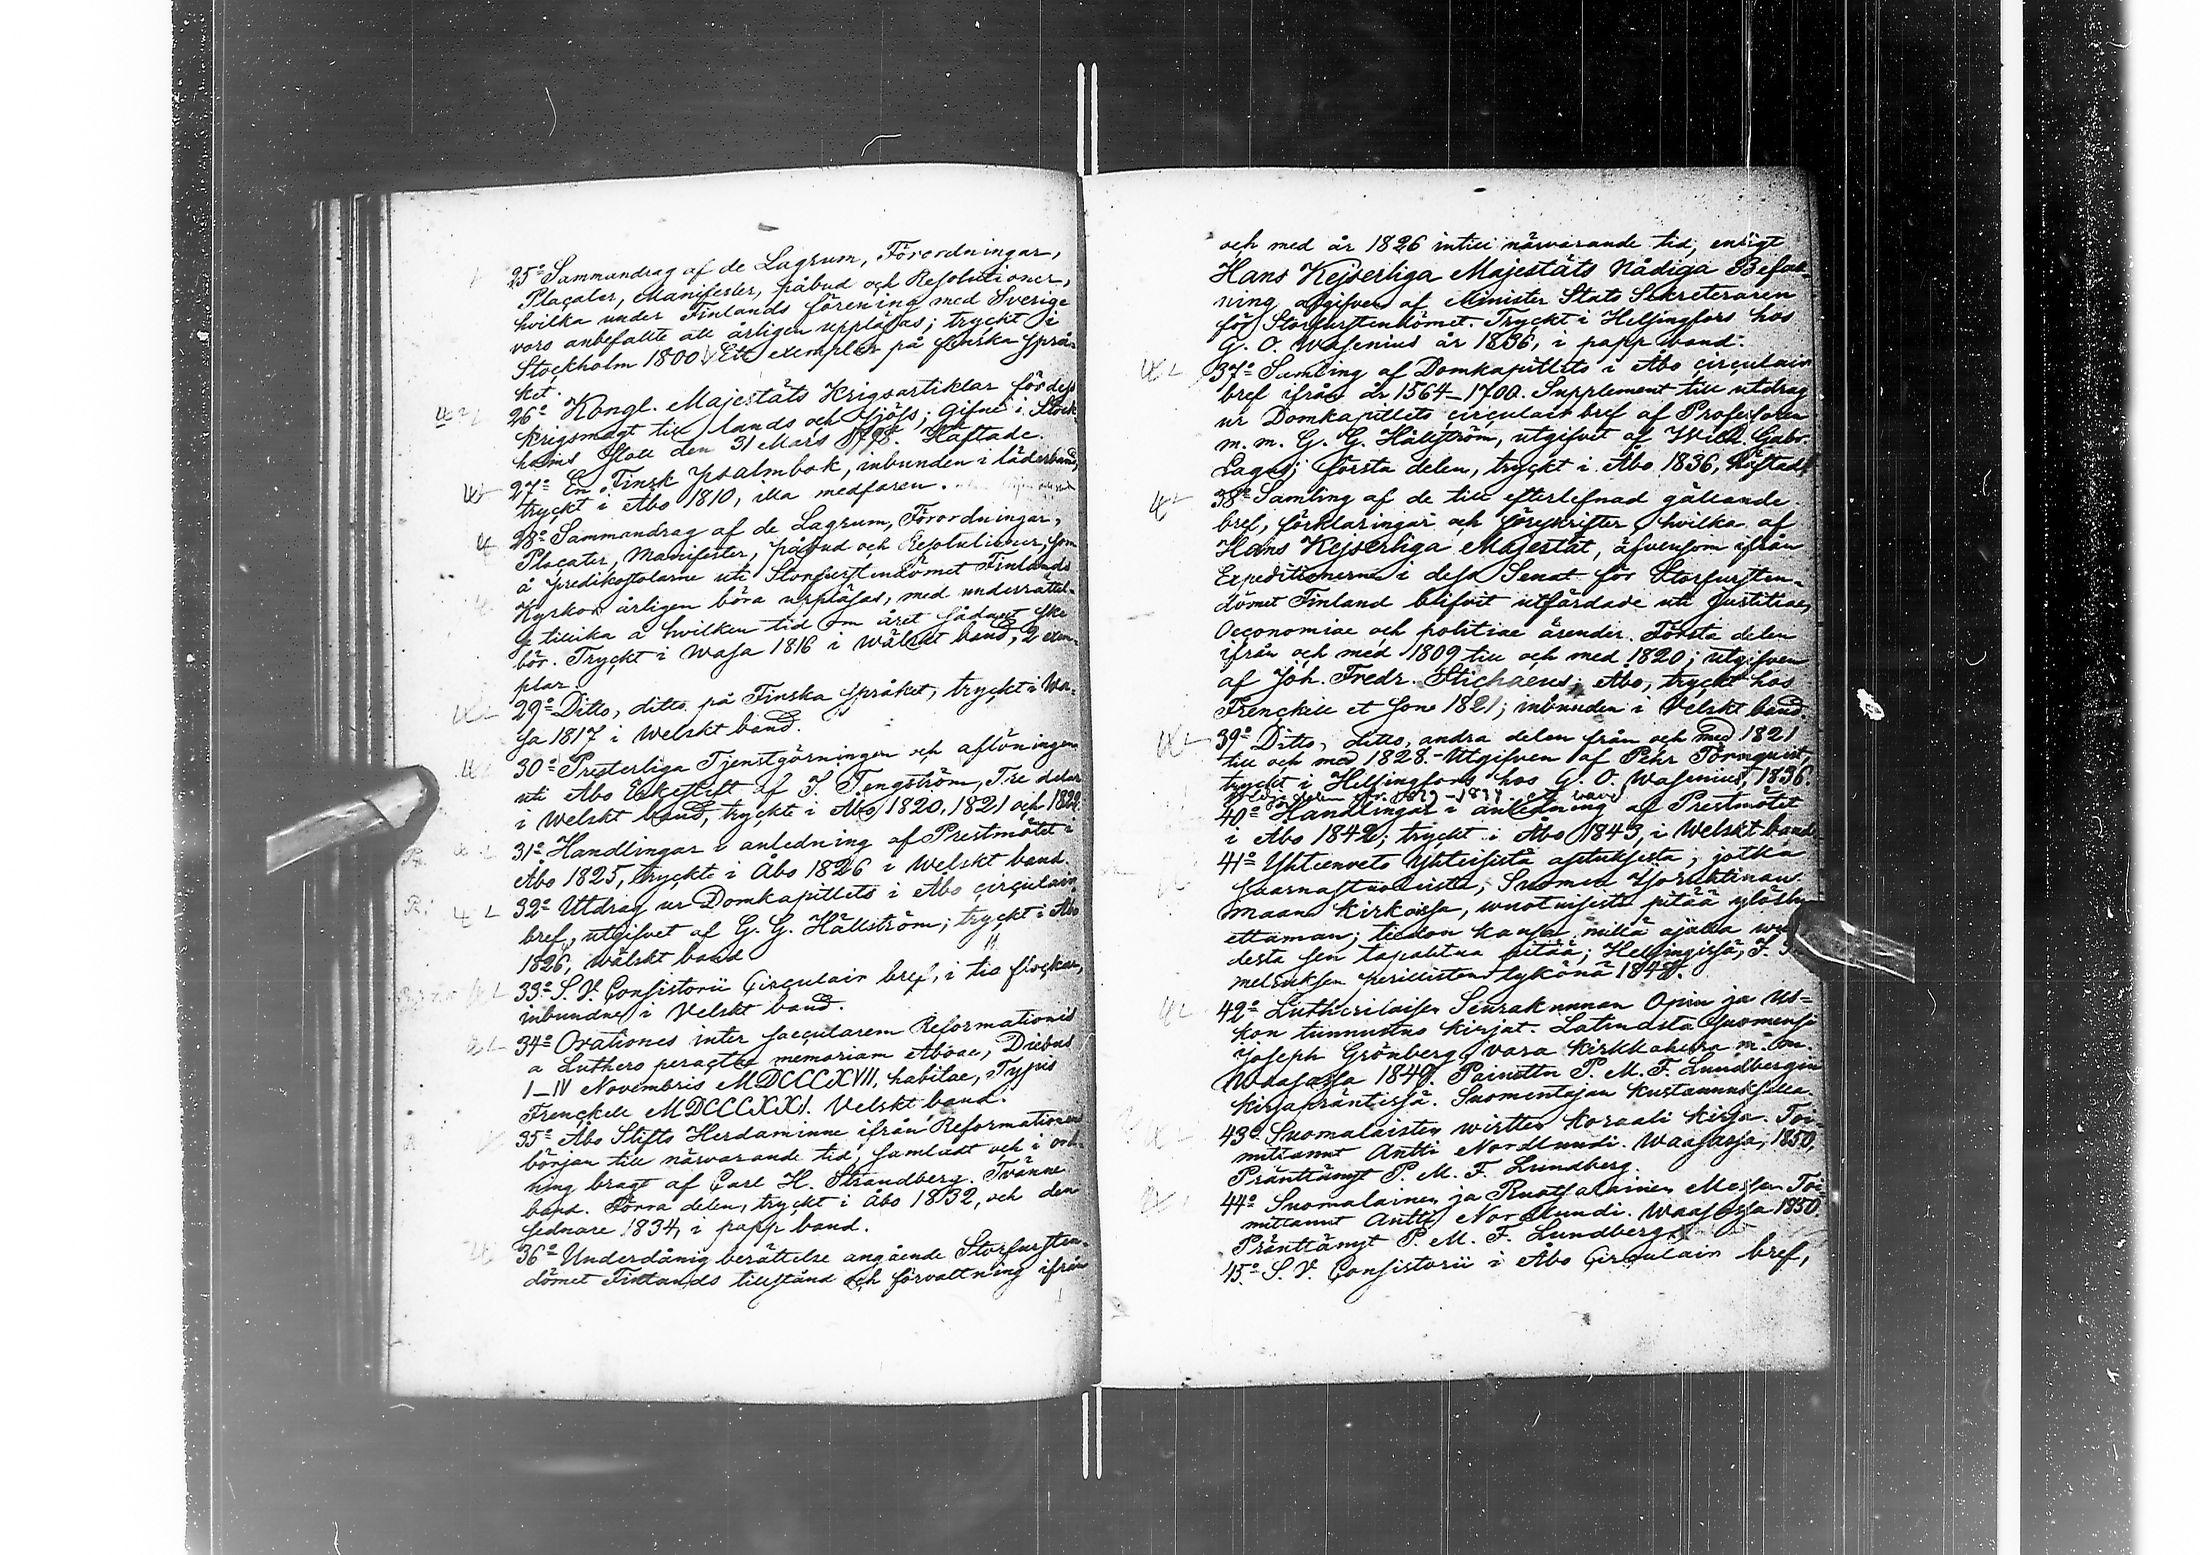 25o Sammandrag af de Lagrum, Förordningar,
Placater, Manifester, påbud och Resolutioner,
hvilka under Finlands förening med Sverige
voro anbefallte att årligen uppläsas; tryckt i
Stockholm 1800. Ett exemplar på finska språ-
ket.
26o Kongl. Majestäts Krigsartiklar för dess
krigsmagt till lands och sjöss; gifne i Stock-
holms slott den 31 Mars 1798. Häftade.
27o En Finsk Psalmbok, inbunden i läderband,
tryckt i Åbo 1810, illa medfaren.
28o Sammandrag af de Lagrum, Förordningar,
Placater, Manifester, påbud och Resolutioner, som
å predikostolarne uti Storfurstendömet Finlands
Kyrkor årligen böra uppläsas, med underrättel-
se tillika å hvilken tid om året sådant ske
bör. Tryckt i Wasa 1816 i wälskt band, 2 exem-
plar.
29o Ditto, ditto på Finska språket, tryckt i Wa-
sa 1817 i Welskt band.
30o Presterliga Tjenstgörningen och aflöningen
uti Åbo Erkestift af J. Tengström, Tre delar
i Welskt band, tryckte i Åbo 1820, 1821 och 1822.
31o Handlingar i anledning af Prestmötet i
Åbo 1825, tryckte i Åbo 1826 i Welskt band.
32o Utdrag ur Domkapitlets i Åbo circulair
bref, utgifvet af G. G. Hällström; tryckt i Åbo
1826, wälskt band
33o S. V. Consistorii Circulair bref, i tio flockar,
inbundne i Velskt band.
34o Orationes inter saecularem Reformationis
a Luthero peractae memoriam Aboae, Diebus
I–IV Novembris MDCCCXVII, habitae, Typis
Frenckell MDCCCXXI. Velskt band.
35o Åbo Stifts Herdaminne ifrån Reformationens
början till närvarande tid, samladt och i ord-
ning bragt af Carl H. Strandberg. Tvänne
band. Förra delen, tryckt i Åbo 1832, och den
sednare 1834, i papp band.
36o Underdånig berättelse angående Storfursten-
dömet Finlands tillstånd och förvaltning ifrån
och med år 1826 intill närvarande tid, enligt
Hans Kejserliga Majestäts Nådiga Befall-
ning afgifven af Minister Stats Sekreteraren
för Storfurstendömet. Tryckt i Helsingfors hos
G. O. Wasenius år 1836, i papp band.
37o Samling af Domkapitlets i Åbo circulair
bref ifrån år 1564–1700. Supplement till utdrag
ur Domkapitlets circulair bref af Professoren
m. m. G. G. Hällström, utgifvit af Wilh. Gabr.
Lagus; första delen, tryckt i Åbo 1836, häftad.
38o Samling af de till efterlefnad gällande
bref, förklaringar och föreskrifter, hvilka af
Hans Kejserliga Majestät, äfvensom ifrån
Expeditionerne i dess Senat för Storfursten-
dömet Finland blifvit utfärdade uti Justitiae,
Oeconomiae och politiae ärender. Första delen
ifrån och med 1809 till och med 1820; utgifven
af Joh. Fredr. Stichaeus; Åbo, tryckt hos
Frenckell et Son 1821; inbunden i Velskt band.
39o Ditto, ditto, andra delen från och med 1821
till och med 1828. Utgifven af Pehr Törnqvist,
tryckt i Helsingfors hos G. O. Wasenius, 1836.
40o Handlingar i anledning af Prestmötet
i Åbo 1842; tryckt i Åbo 1843, i Welskt band
41o Yhteenveto Yhteisistä asetuksista, jotka
Saarnastuolista, Suomen
maan Kirkoissa, wuotuisesti pitää
ettaman; tiedon kanssa millä ajalla
desta sen tapahtua pitää; Helsingissä, J.
42o Lutherilaisen Seurakunnan Opin ja Us-
kon tunnustus kirjat. Latinasta Suomensi
Joseph Grönberg, vara kirkkoherra m. m.
Waasassa 1849. Painettu P. M. F. Lundbergin
kirjapräntissä. Suomentajan kustannuksella.
43o Suomalaisten wirtten koraali kirja. Toi-
mittanut Antti Nordlundi. Waasassa, 1850,
Präntännyt P. M. F. Lundberg.
44o Suomalainen ja Ruotsalainen Messu. Toi-
mittanut Antti Nordlundi. Waasassa 1850.
Präntännyt P. M. F. Lundberg.
45o S. V. Consistorii i Åbo Circulair bref,